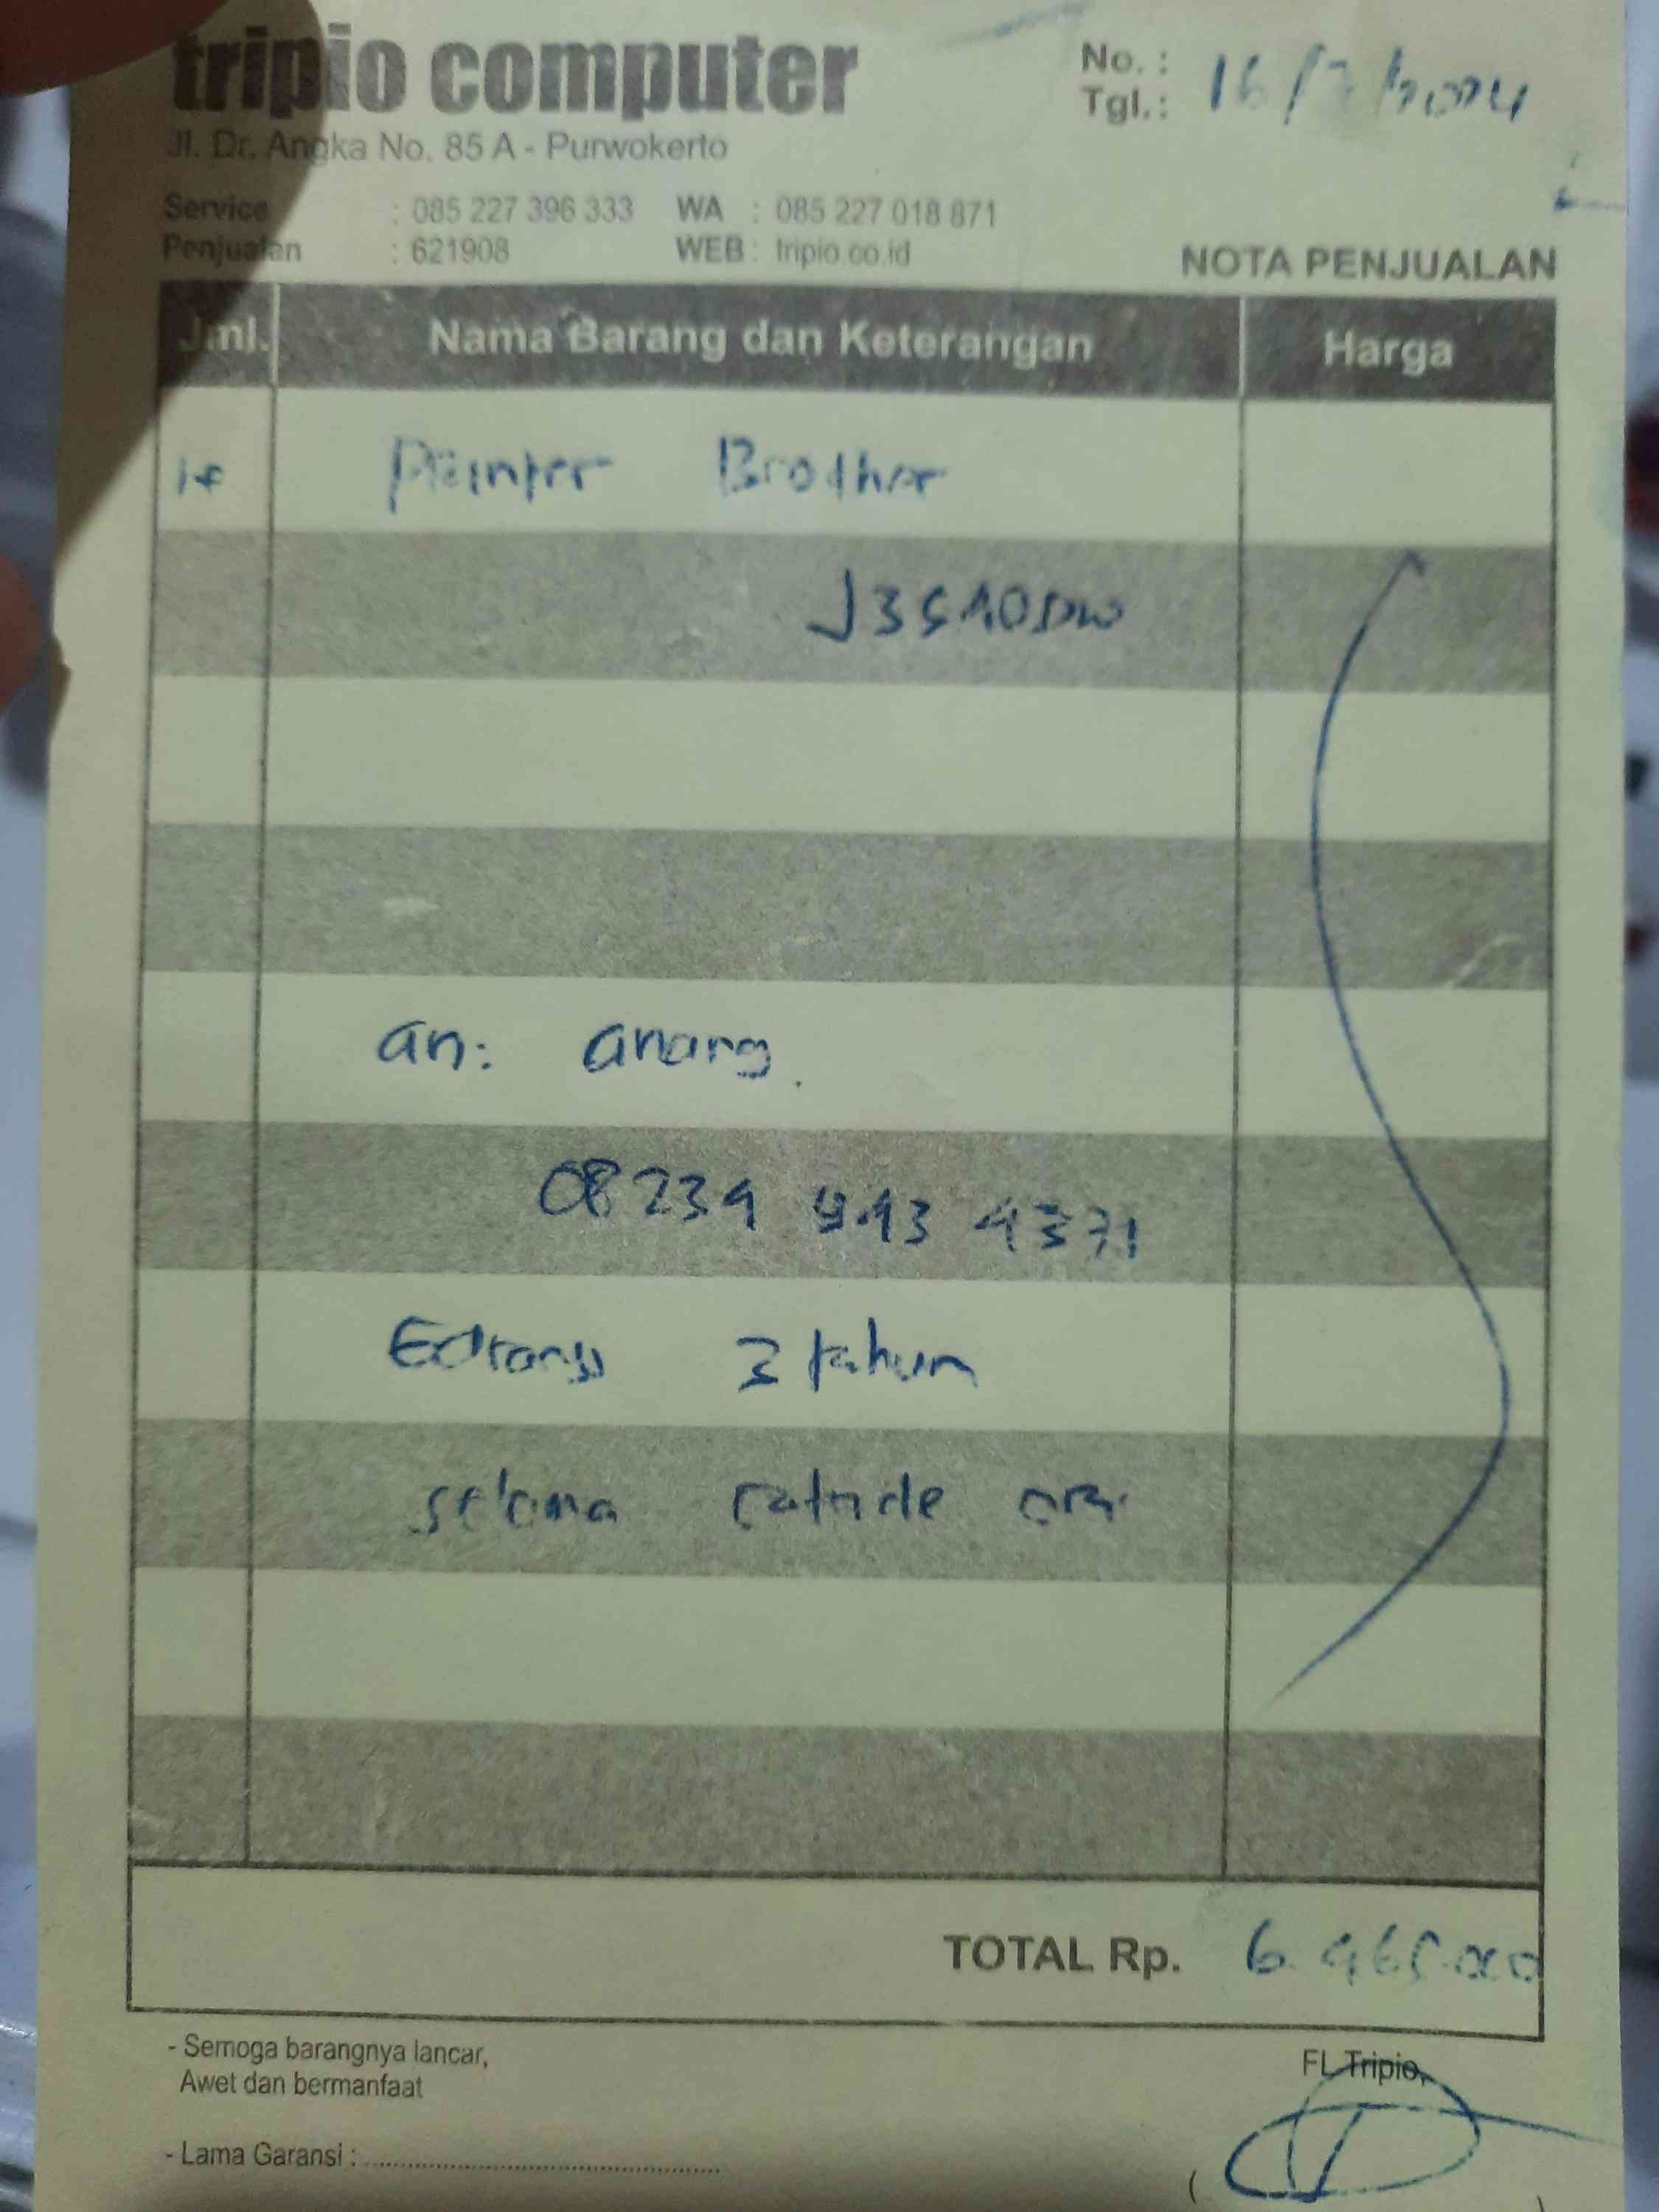 tripio computer
Jl. Dr. Angka No. 85 A - Purwokerto
No. :
Tgl. : 16/7/2024
Service : 085 227 396 333 WA : 085 227 018 871
Penjualan : 621908 WEB : tripio.co.id
NOTA PENJUALAN
Jml. Nama Barang dan Keterangan Harga
Printer Brother
J3540DW
an: anang.
Garansi 3 tahun
selama catride ori
TOTAL Rp. 6.465.000
- Semoga barangnya lancar,
Awet dan bermanfaat
FL Tripio,
- Lama Garansi :